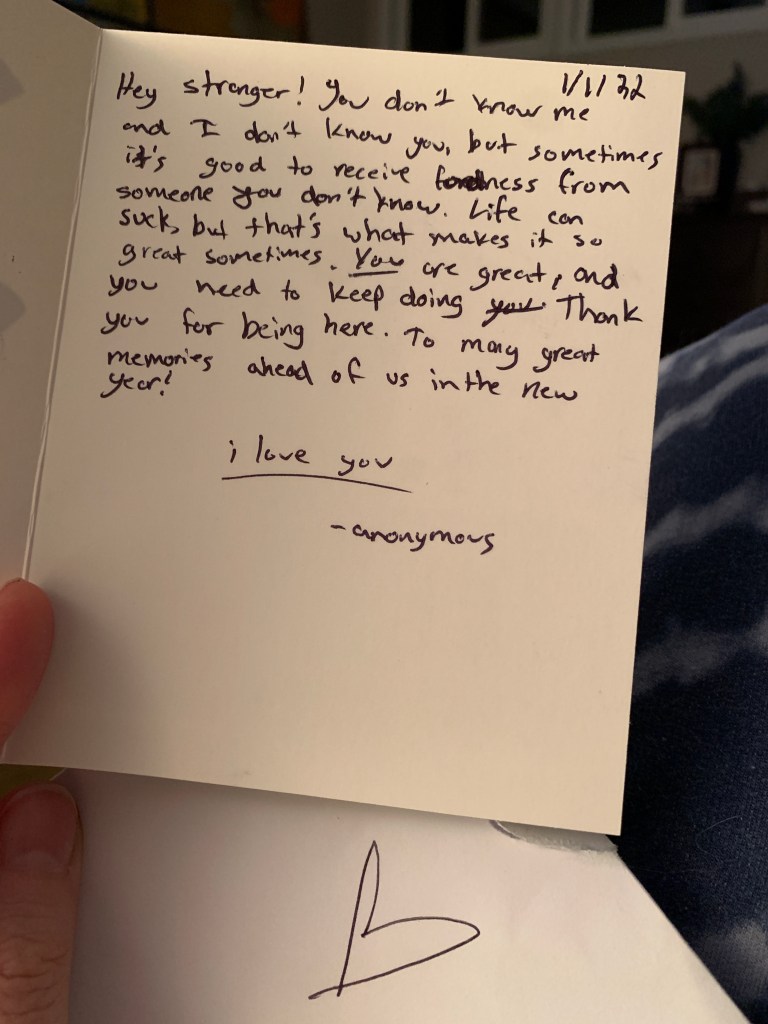 1/1/22
Hey stranger! You don't know me
and I don't know you, but sometimes
it's good to receive fondness from
someone you don't know. Life can
suck, but that's what makes it so
great sometimes. You are great, and
you need to keep doing you. Thank
you for being here. To many great
memories ahead of us in the new
year!
i love you
-anonymous